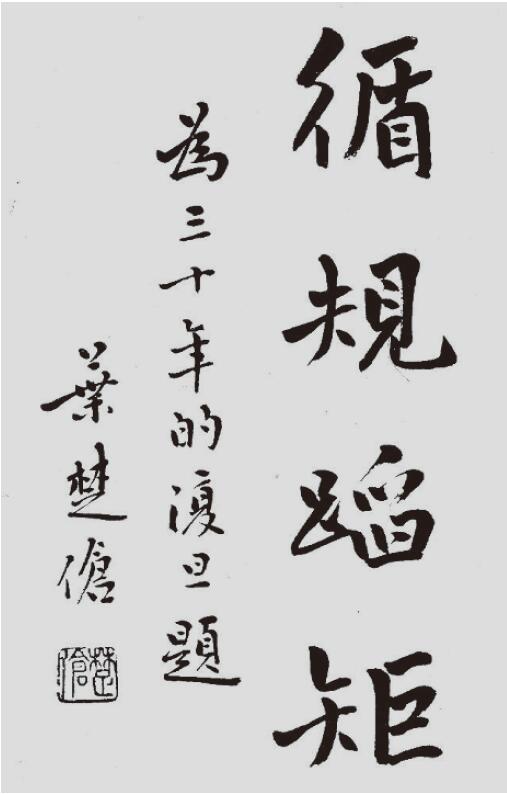 循規蹈矩
為三十年的復旦題
葉楚傖
楚傖